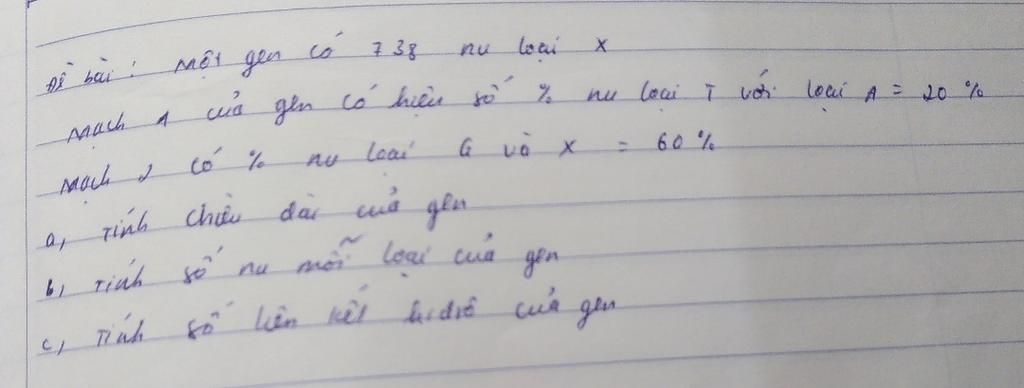 Đề bài: Một gen có 738 nu loại X
Mạch 1 của gen có hiệu số % nu loại T với loại A = 20%
Mạch 2 có % nu loại G và X = 60%
a, Tính chiều dài của gen
b, Tính số nu mỗi loại của gen
c, Tính số liên kết hidrô của gen